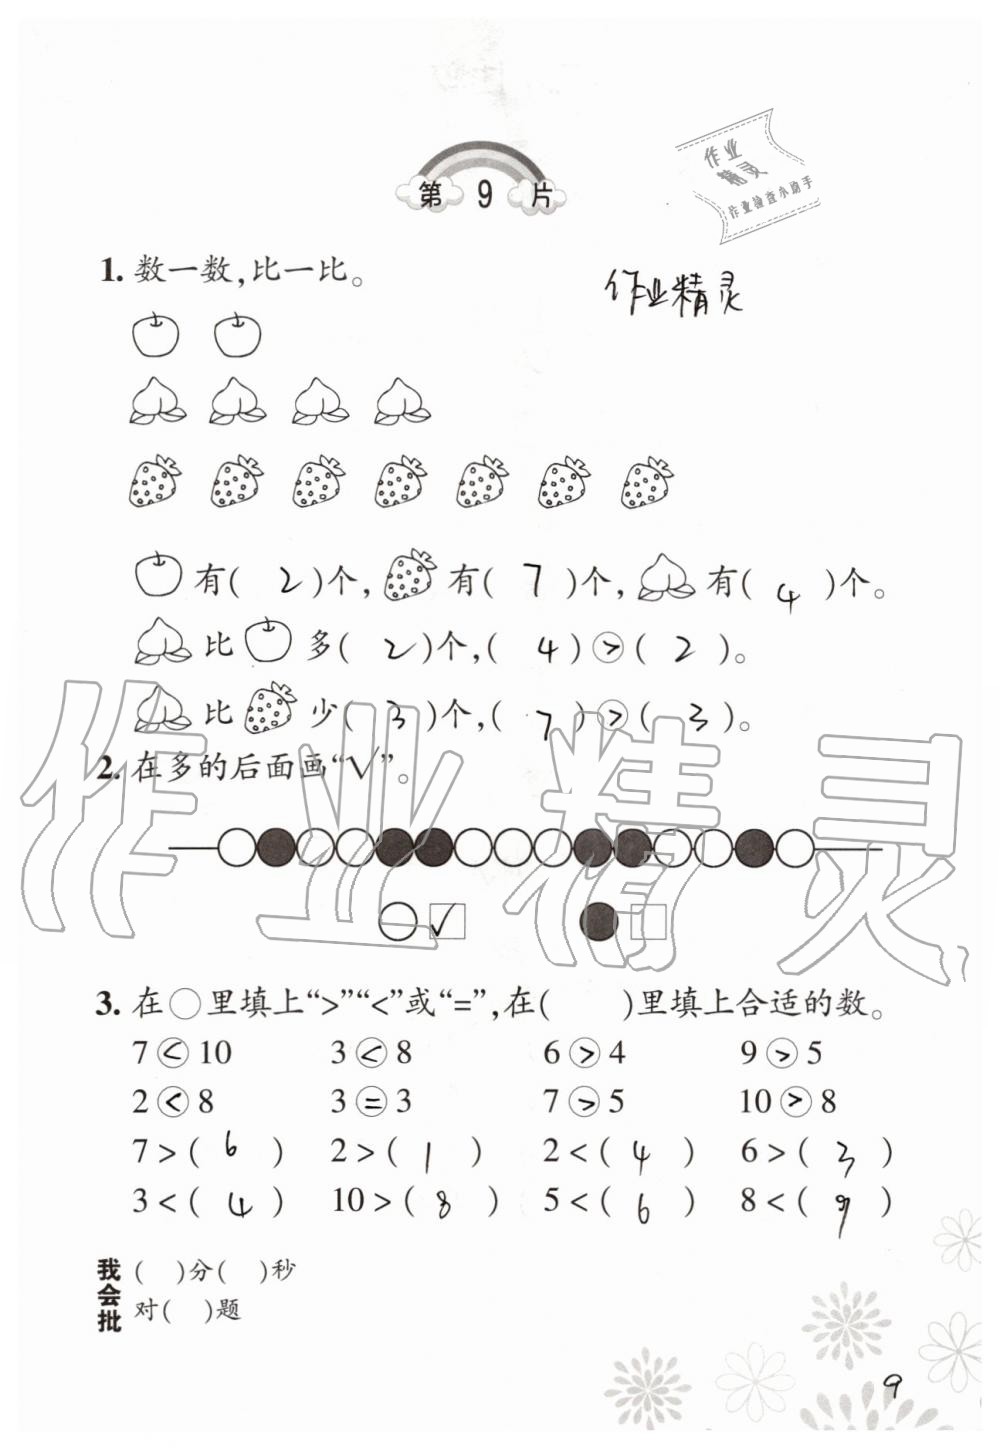 第 9 片
作业
精灵
作业检查小助手
1. 数一数,比一比。
作业精灵
有( 2 )个, 有( 7 )个, 有( 4 )个。
比 多( 2 )个,( 4 ) > ( 2 )。
比 少( 3 )个,( 7 ) > ( 3 )。
2. 在多的后面画“√”。
√
作业精灵
3. 在○里填上“>”“<”或“=”,在( )里填上合适的数。
7 < 10 3 < 8 6 > 4 9 > 5
2 < 8 3 = 3 7 > 5 10 > 8
7 > ( 6 ) 2 > ( 1 ) 2 < ( 4 ) 6 > ( 3 )
3 < ( 4 ) 10 > ( 8 ) 5 < ( 6 ) 8 < ( 9 )
我会批
( )分( )秒
对( )题
9